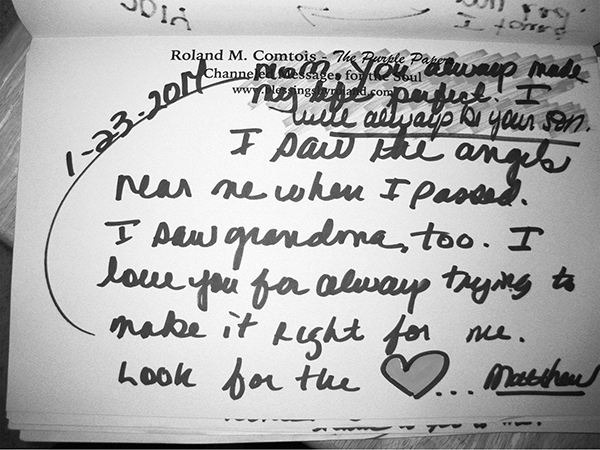 Roland M. Comtois - The Purple Papers
Channeled Messages for the Soul
www.blessingsbyroland.com
1-23-2014
Mom, You always made
my life perfect. I
will always be your son.
I saw the angels
near me when I passed.
I saw grandma, too. I
love you for always trying to
make it right for me.
Look for the ... Matthew